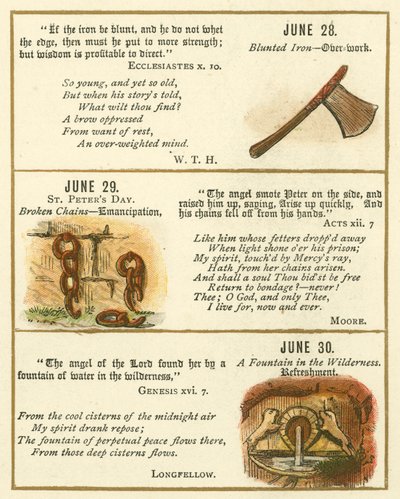 "If the iron be blunt, and he do not whet
the edge, then must he put to more strength;
but wisdom is profitable to direct."
ECCLESIASTES X. 10.
So young, and yet so old,
But when his story's told,
What wilt thou find?
A brow oppressed
From want of rest,
An over-weighted mind.
W. T. H.
JUNE 28.
Blunted Iron—Over-work.
JUNE 29.
ST. PETER'S DAY.
Broken Chains—Emancipation,
"The angel smote Peter on the side, and
raised him up, saying, Arise up quickly, And
his chains fell off from his hands."
ACTS xii. 7
Like him whose fetters dropp'd away
When light shone o'er his prison;
My spirit, touch'd by Mercy's ray,
Hath from her chains arisen.
And shall a soul Thou bid'st be free
Return to bondage?—never!
Thee; O God, and only Thee,
I live for, now and ever.
MOORE.
"The angel of the Lord found her by a
fountain of water in the wilderness,"
GENESIS xvi. 7.
From the cool cisterns of the midnight air
My spirit drank repose;
The fountain of perpetual peace flows there,
From those deep cisterns flows.
LONGFELLOW.
JUNE 30.
A Fountain in the Wilderness.
Refreshment.